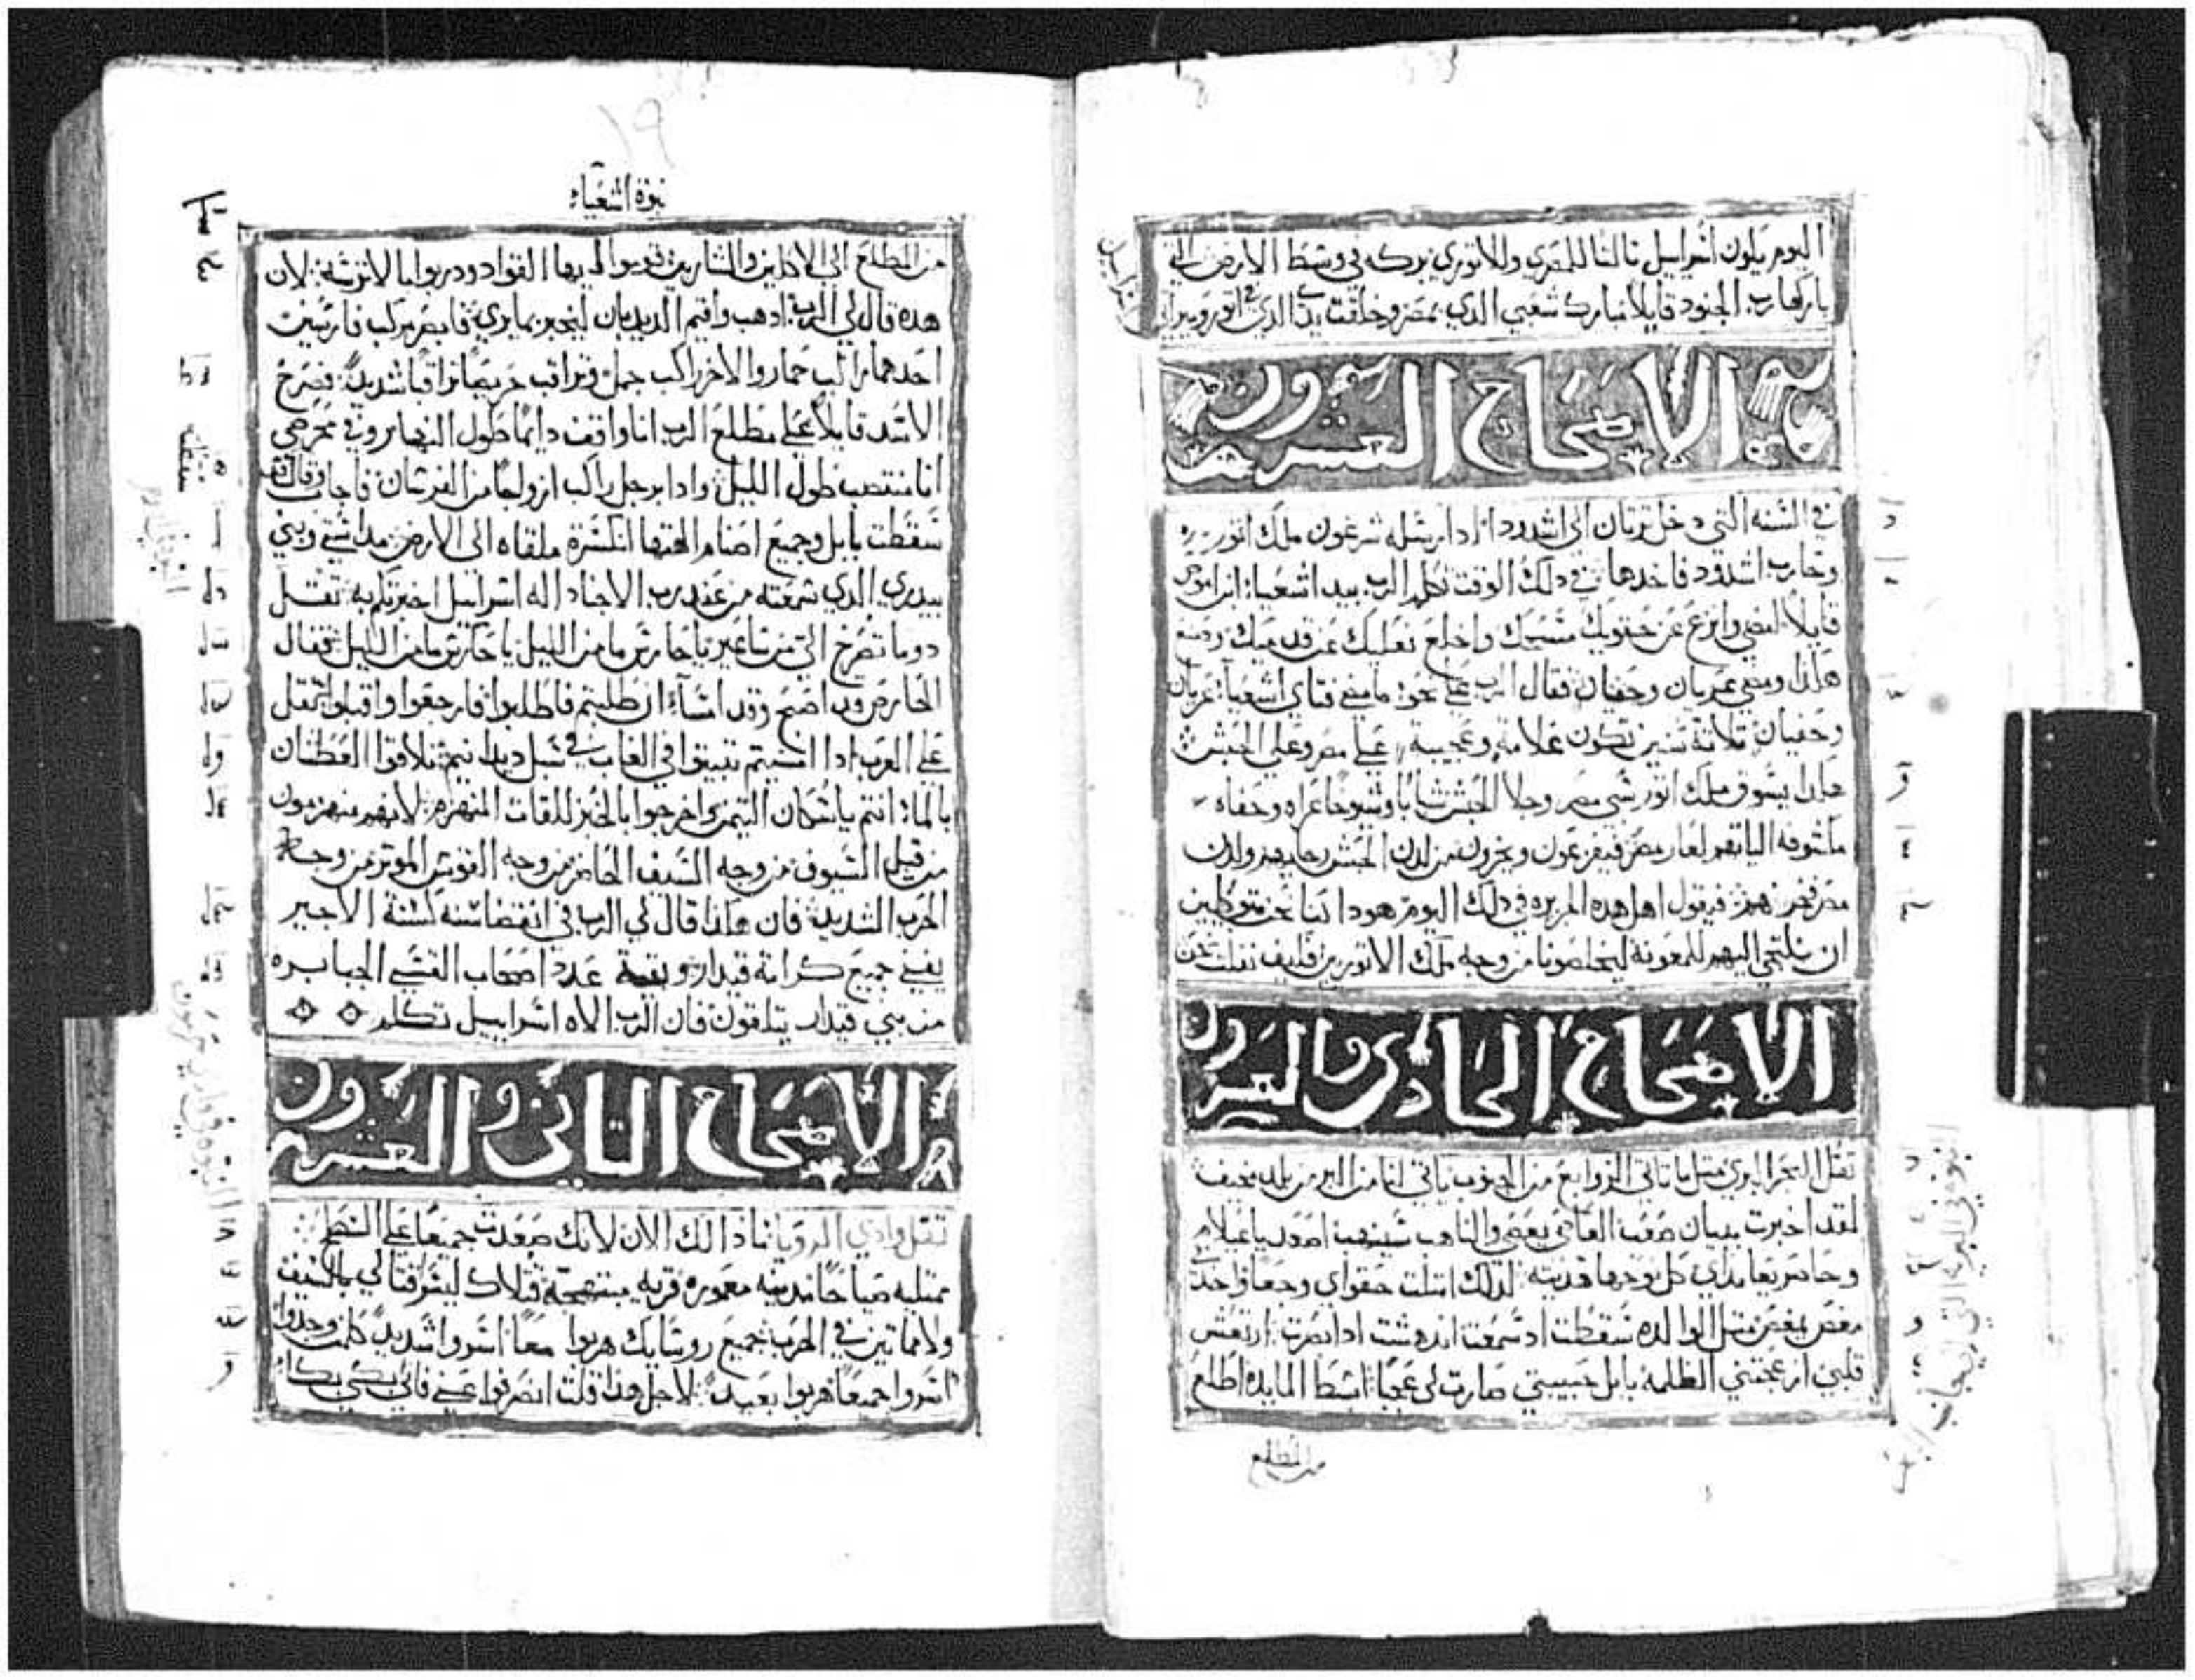 اليوم يكون اسراييل تالتا للمصري وللاتوري بركه في وسط الارض التي
باركها رب الجنود قايلا مبارك شعبي الذي بمصر وخلقت يدي الذي في اتور وميراتي
الاصحاح العشرون
في السنه التي دخل ترتان الى اشدود اذ ارسله سرغون ملك اتور
وحارب اشدود فاخدها في دلك الوقت تكلم الرب بيد اشعيا ابن اموص
قايلا امضي وانزع عن حقويك مسحك واخلع نعليك عن قدميك وصنع
هكذا ومضي عريان وحفيان فقال الرب على نحو ما مضى فتاي اشعيا عريان
وحفيان تلاتة سنين تكون علامة وعجيبة على مصر وعلى الحبش
هكدا يسوق ملك اتور سبي مصر وجلا الحبش شابا وشيوخا عراه وحفاه
مكشوفه الياتهم لعار مصر فيفزعون ويخزون من لدن الحبش رجايهم ولدن
مصر فخرهم فيقول اهل هده الجزيره في دلك اليوم هودا كنا نحن متوكلين
ان نلتجي اليهم للمعونة ليخلصونا من وجه ملك الاتوريين فكيف نفلت نحن
الاصحاح الحادي والعشرون
تقل البحر البري مثل ما تاتي الزوابع من الجنوب ياتي لنا من البر من بلد مخيف
لقد اخبرت ببيان صعب العاصي يعصي والناهب سينهب اصعد يا عيلام
وحاصر يا ماداي كل نوحها هديته لدلك امتلت حقواي وجعا واخدني
مغص كمغص متل الوالده سقطت اد سمعت اندهشت اد ابصرت ارتعش
قلبي ازعجتني الظلمة بابل حبيبتي صارت لي عجبا ابسط المايده اطلع
من المطلع
نبوة اشعياء
من المطلع الى الاكلين والشاربين قوموا ايها القواد ودربوا بالاترسة لان
هده قال لي الرب ادهب واقم الديدبان ليخبر بما يري فابصر مركب فارسين
احدهما راكب حمار والاخر راكب جمل وراقب حريصا مراقبا شديدا فصرخ
الاسد قايلا على مطلع الرب انا واقف دايما طول النهار وفي محرسي
انا منتصب طول الليل وادا برجل راكب ازواجا من الفرسان فاجاب وقال سقطت
سقطت بابل وجميع اصنام الهتها انكسرة ملقاه الى الارض مداستي وبني
بيدري الدي سمعته من عند رب الاجناد اله اسراييل اخبرتكم به تقل
دوما تصرخ الي من ساعير يا حارس ما من الليل يا حارس ما من الليل فقال
الحارس قد اصبح وقد امساء ان طلبتم فاطلبوا فارجعوا واقبلوا تقل
على العرب ادا امسيتم تبيتوا في الغاب في سبل ديدانيم تلاقوا العطشان
بالماء انتم يا سكان التيمن اخرجوا بالخبز للقات المنهزم لانهم منهزمون
من قبل السيوف من وجه السيف الحاضر من وجه القوس الموتر من وجه
الحرب الشديد فان هكذا قال لي الرب في انقضا سنه كسنة الاجير
يفني جميع كرامة قيدار وبقية عدد اصحاب القسي الجبابره
من بني قيدار يتلقون فان الرب الاه اسراييل تكلم
الاصحاح التاني والعشرون
تقل وادي الرويا ماذا لك الان لانك صعدت جميعا على السطح
ممتليه صياحا مدينه معموره قريه مبتهجة قتلاك ليسو قتالي بالسيف
ولاماتين في الحرب جميع روسايك هربوا معا اسروا شديدا كلمن وجدوا
اسروا جميعا هربوا بعيدا لاجل هذا قلت انصرفوا عني فاني ابكي بكاء